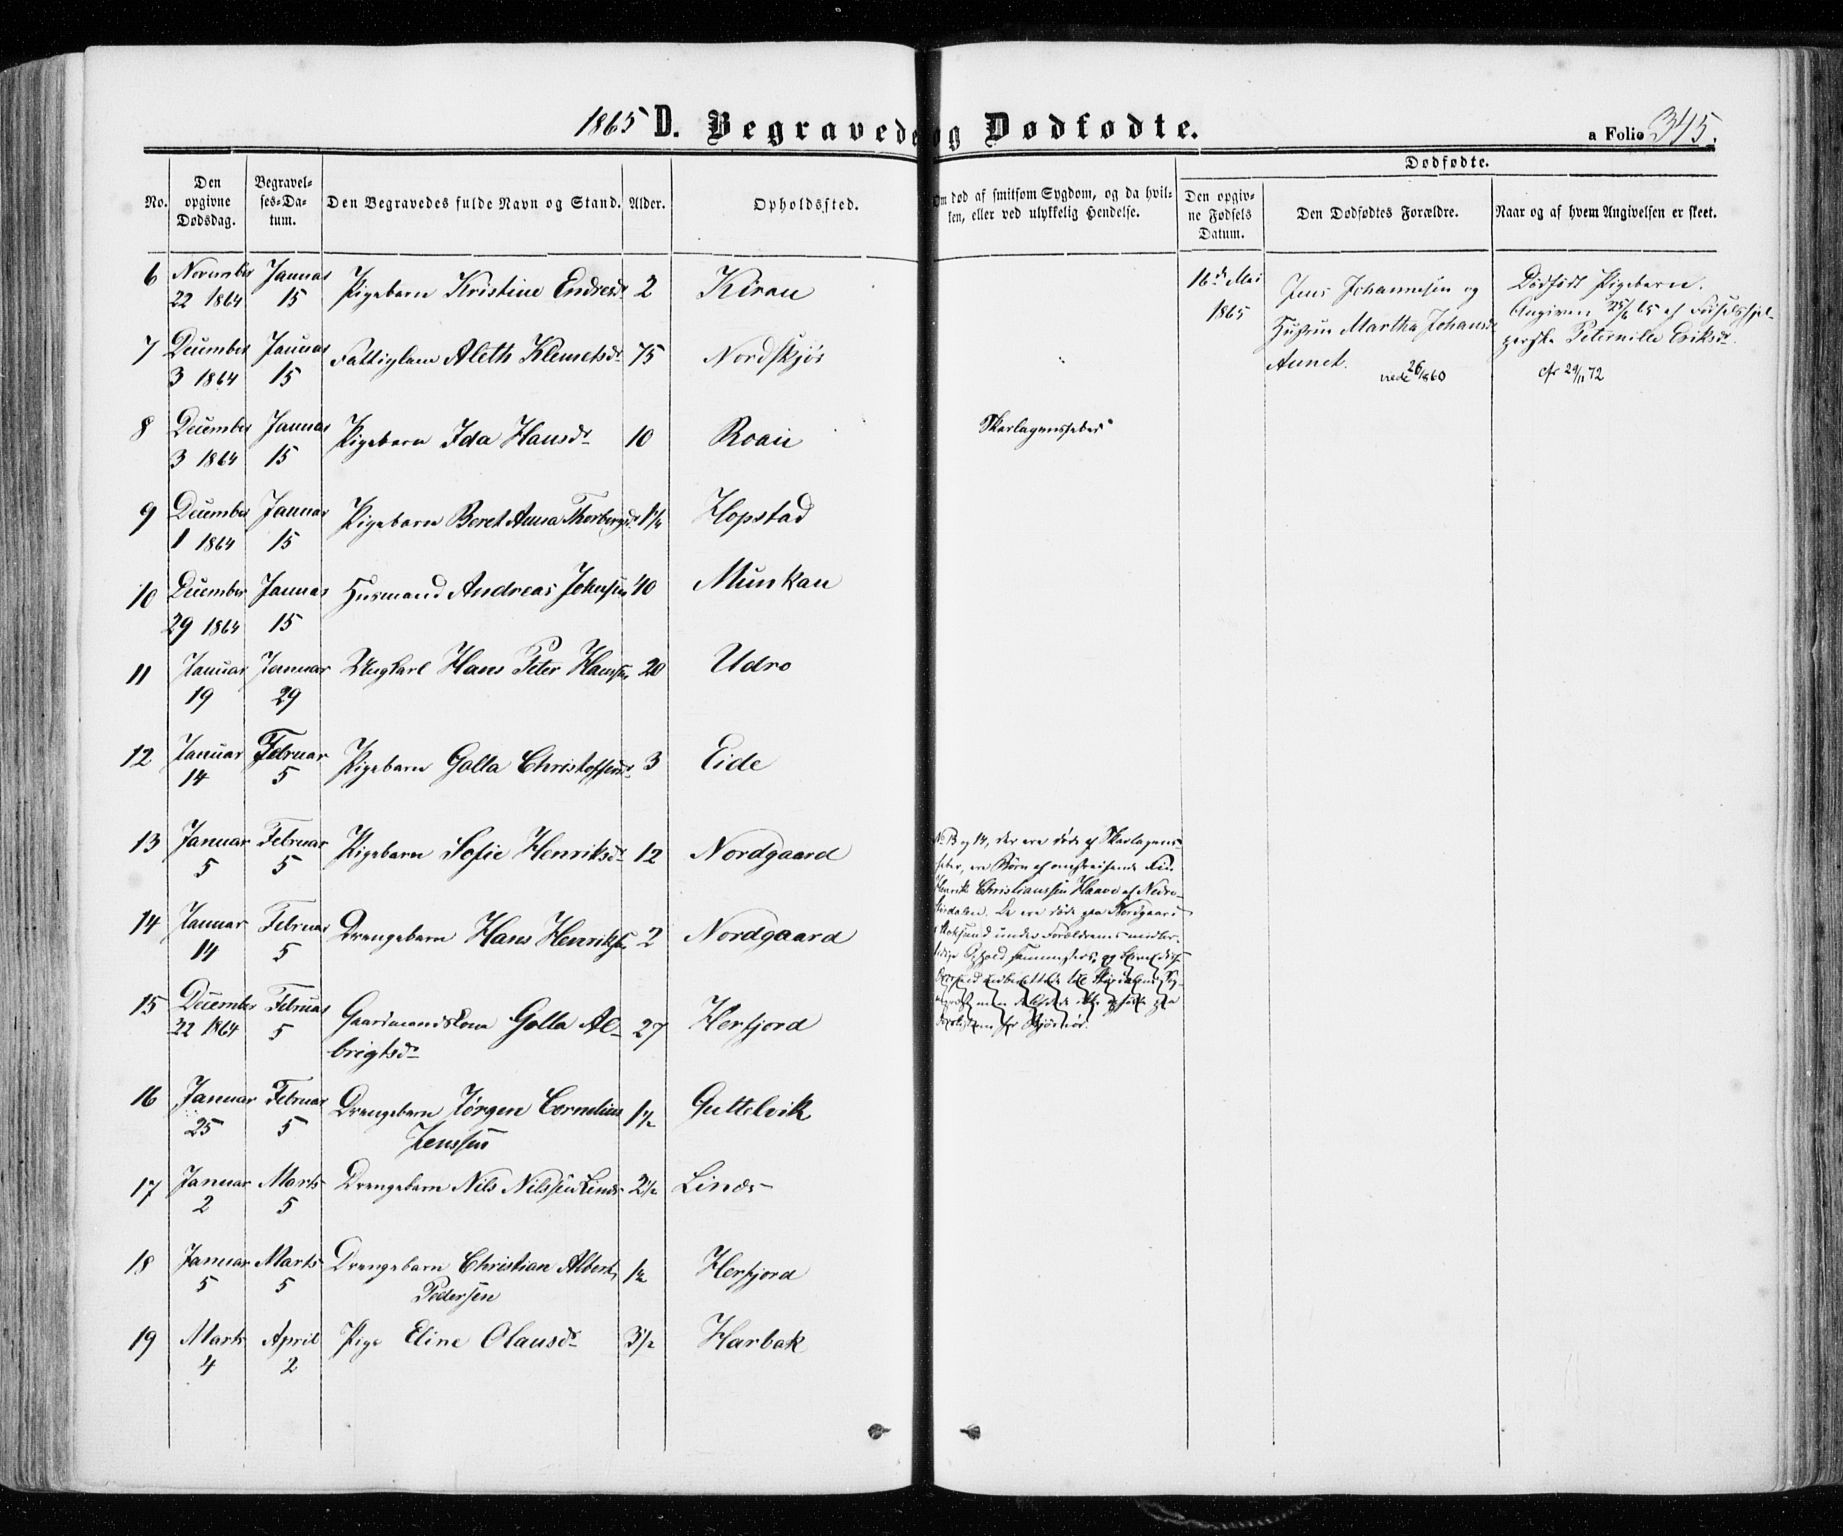 1865 D. Begravede og Dødfødte. a Folio 345.
Dødfødte.
No. Den opgivne Dødsdag. Begravelses-Datum. Den Begravedes fulde Navn og Stand. Alder. Opholdssted. Om død af smitsom Sygdom, og da hvilken, eller ved ulykkelig Hendelse. Den opgivne Fødsels Datum. Den Dødfødtes Forældre. Naar og af hvem Angivelsen er skeet.
6 November 22 1864 Januar 15 Pigebarn Kristine Endresdr 2 Kiran
16de Mai 1865 Jens Johannesen og Hustru Martha Johansdr Aunet. Dødfødt Pigebarn. Angiven af Fødselshjelperske Peternille Eriksdr.
7 December 3 1864 Januar 15 Fattiglem Aleth Klemetsdr 75 Nordskjør
8 December 3 1864 Januar 15 Pigebarn Ida Hansdr 10 Roan Skarlagensfeber
9 December 1 1864 Januar 15 Pigebarn Beret Anna Thorbergsdr Hopstad
10 December 29 1864 Januar 15 Husmand Andreas Johnsen 40 Munkan
11 Januar 19 Januar 29 Ungkarl Hans Peter Hanssen 20 Udro
12 Januar 14 Februar 5 Pigebarn Golla Christoffersdr 3 Eide
13 Januar 5 Februar 5 Pigebarn Sofie Henriksdr 12 Nordgaard
No 13 og 14, der ere døde af Skarlagens-
feber, ere Børn af omstreifende Fin
Henrik Christianssen Haave af Namdalen. De ere døde paa Nordgaard
14 Januar 14 Februar 5 Drengebarn Hans Henriks. 2 Nordgaard
i Stoksund under Forældrenes midler-
tidige Ophold
15 December 22 1864 Februar 5 Gaardmandskone Golla Al-
brigtsdr 27 Herfjord
16 Januar 25 Februar 5 Drengebarn Jørgen Cornelius
Jenssen 1½ Guttelvik
17 Januar 2 Marts 5 Drengebarn Nils Nilssen 2½ Linæs
18 Januar 5 Marts 5 Drengebarn Christian Albert
Pedersen ½ Herfjord
19 Marts 4 April 2 Pige Eline Olausdr 3½ Harbak